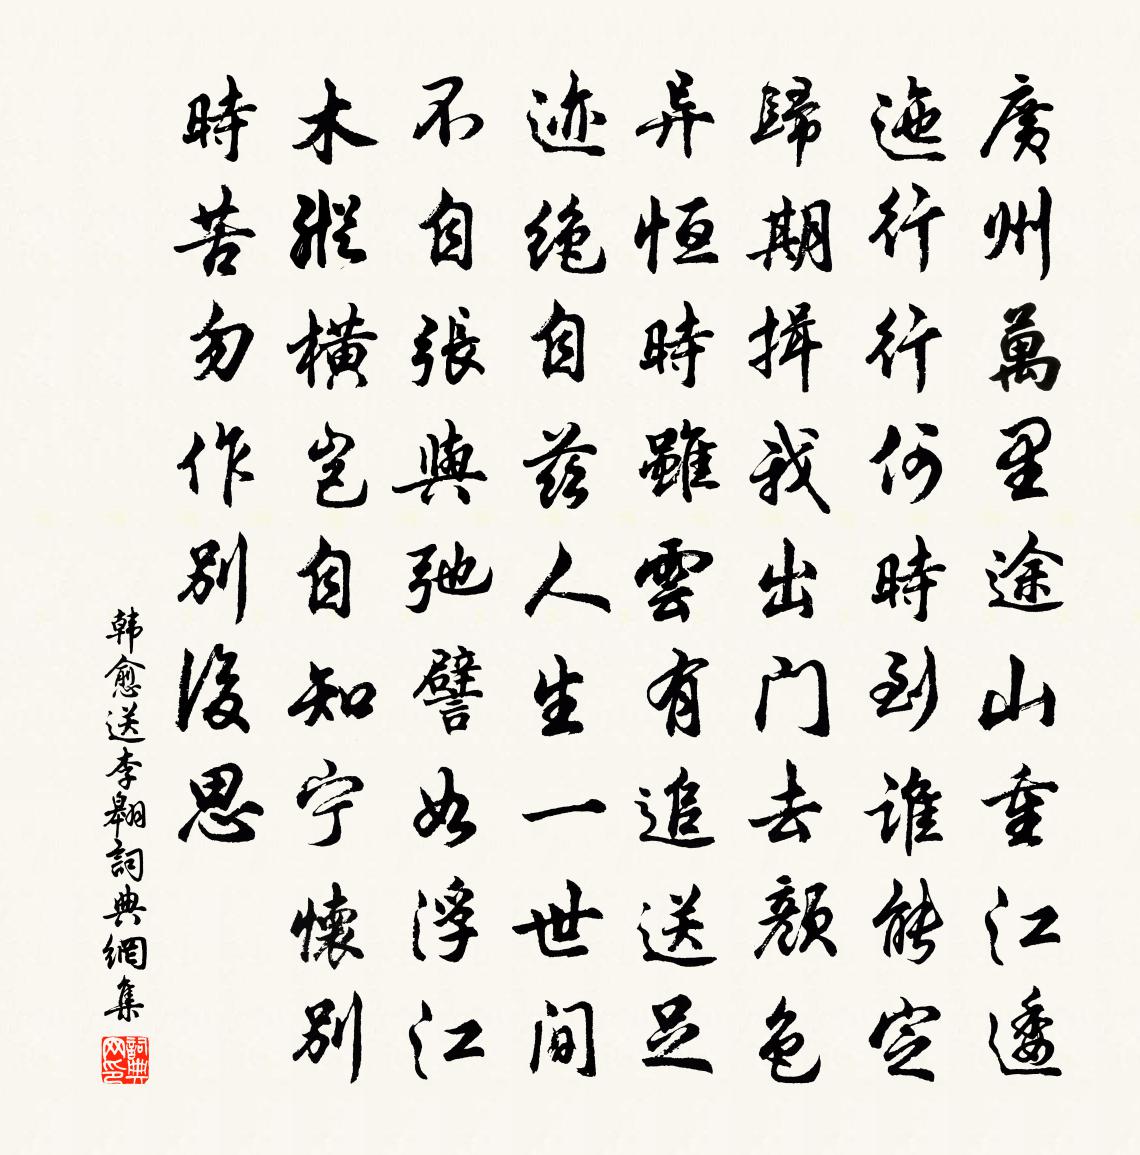 廣州萬里途山重江逶
迤行行何時到誰能定
歸期揖我出门去顔色
异恒時雖雲有追送足
迹绝自兹人生一世间
不自張與弛譬如浮江
木縱橫豈自知宁懷别
時苦勿作别後思
韩愈送李翱詞典網集
詞典网印